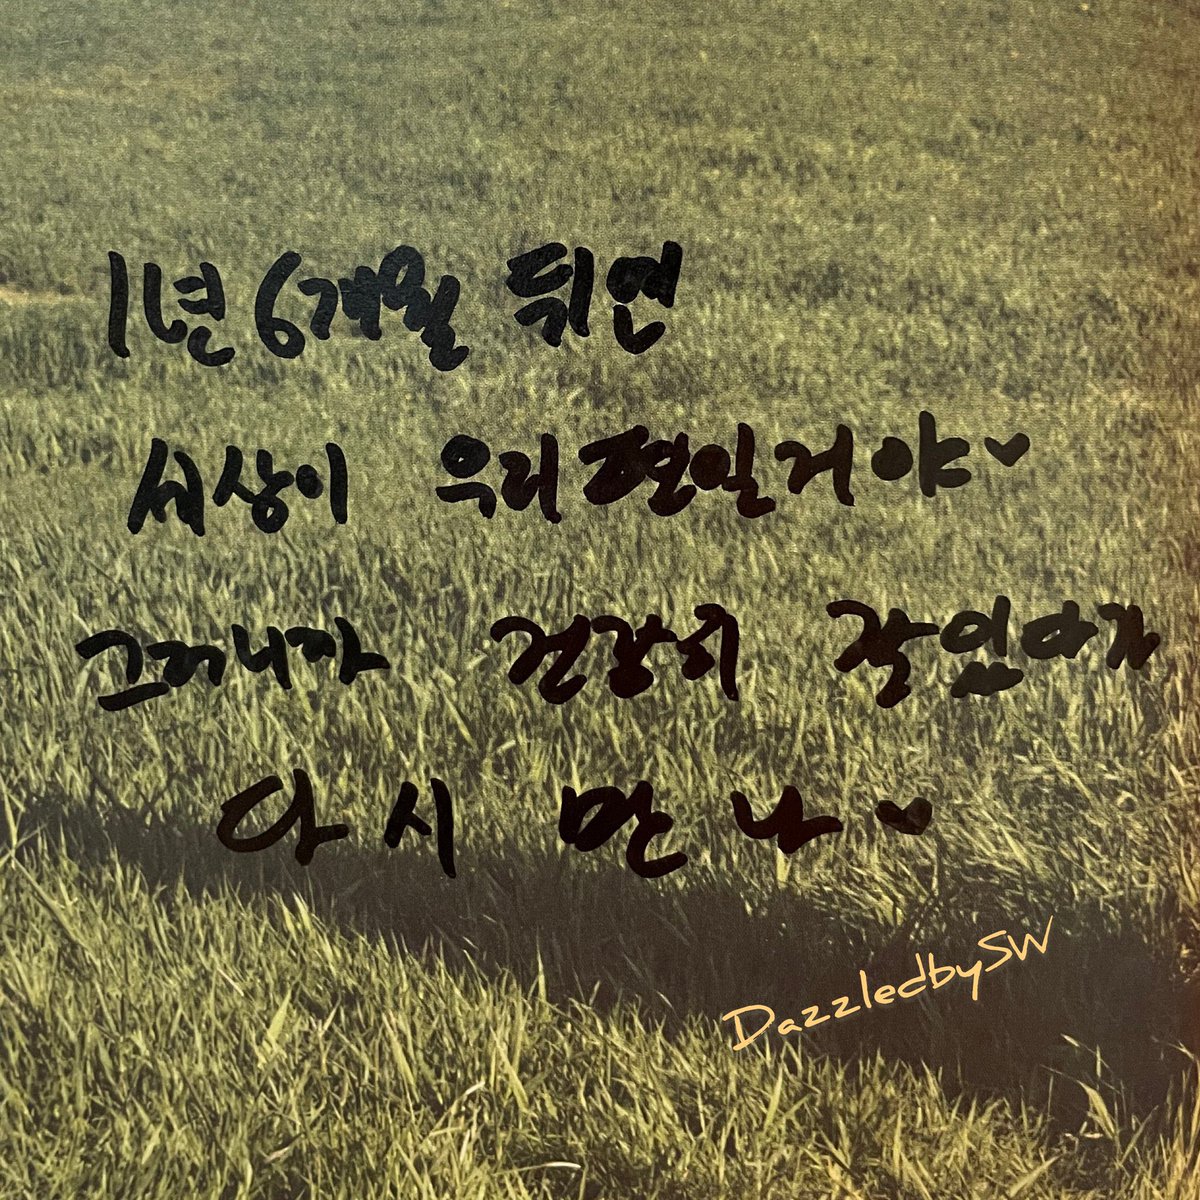 1년 6개월 뒤면
세상이 우리편일거야♥
그러니까 건강히 잘있다가
다시 만나♥
DazzledbySW